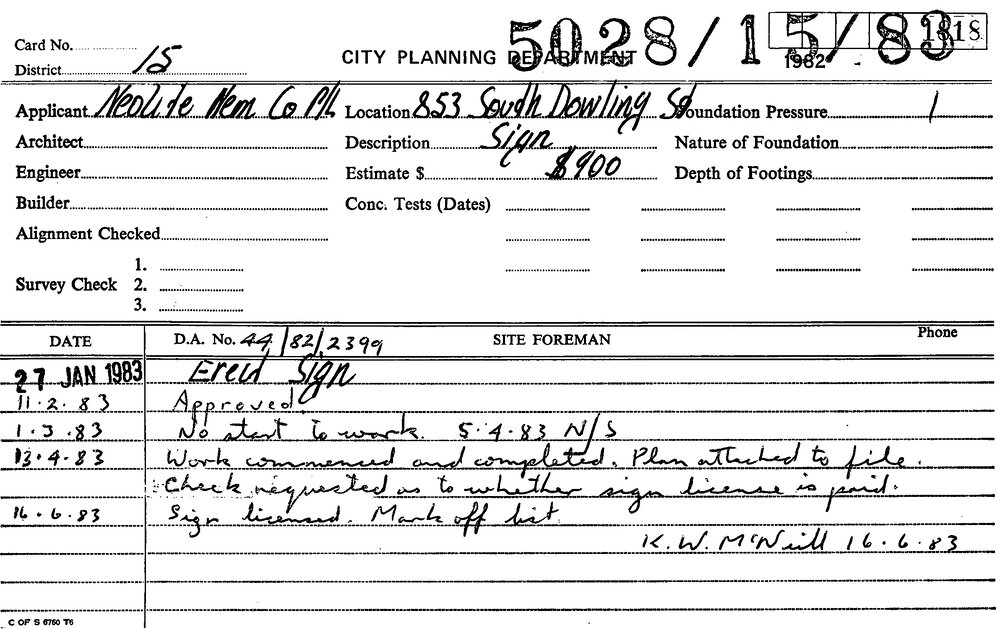 Card No.
5028/15/83
1818
District 15
CITY PLANNING DEPARTMENT
1982
Applicant Neolite Nem. Co P/L Location 853 South Dowling St Foundation Pressure 1
Architect Description Sign Nature of Foundation
Engineer Estimate $ $900 Depth of Footings
Builder Conc. Tests (Dates)
Alignment Checked
1.
Survey Check 2.
3.
DATE D.A. No. 44/82/2399 SITE FOREMAN Phone
27 JAN 1983 Erect Sign
11.2.83 Approved.
1.3.83 No start to work. 5.4.83 N/S
13.4.83 Work commenced and completed. Plan attached to file.
Check requested as to whether sign license is paid.
16.6.83 Sign licensed. Mark off list
K.W. McNeill 16.6.83
C OF S 6760 T6